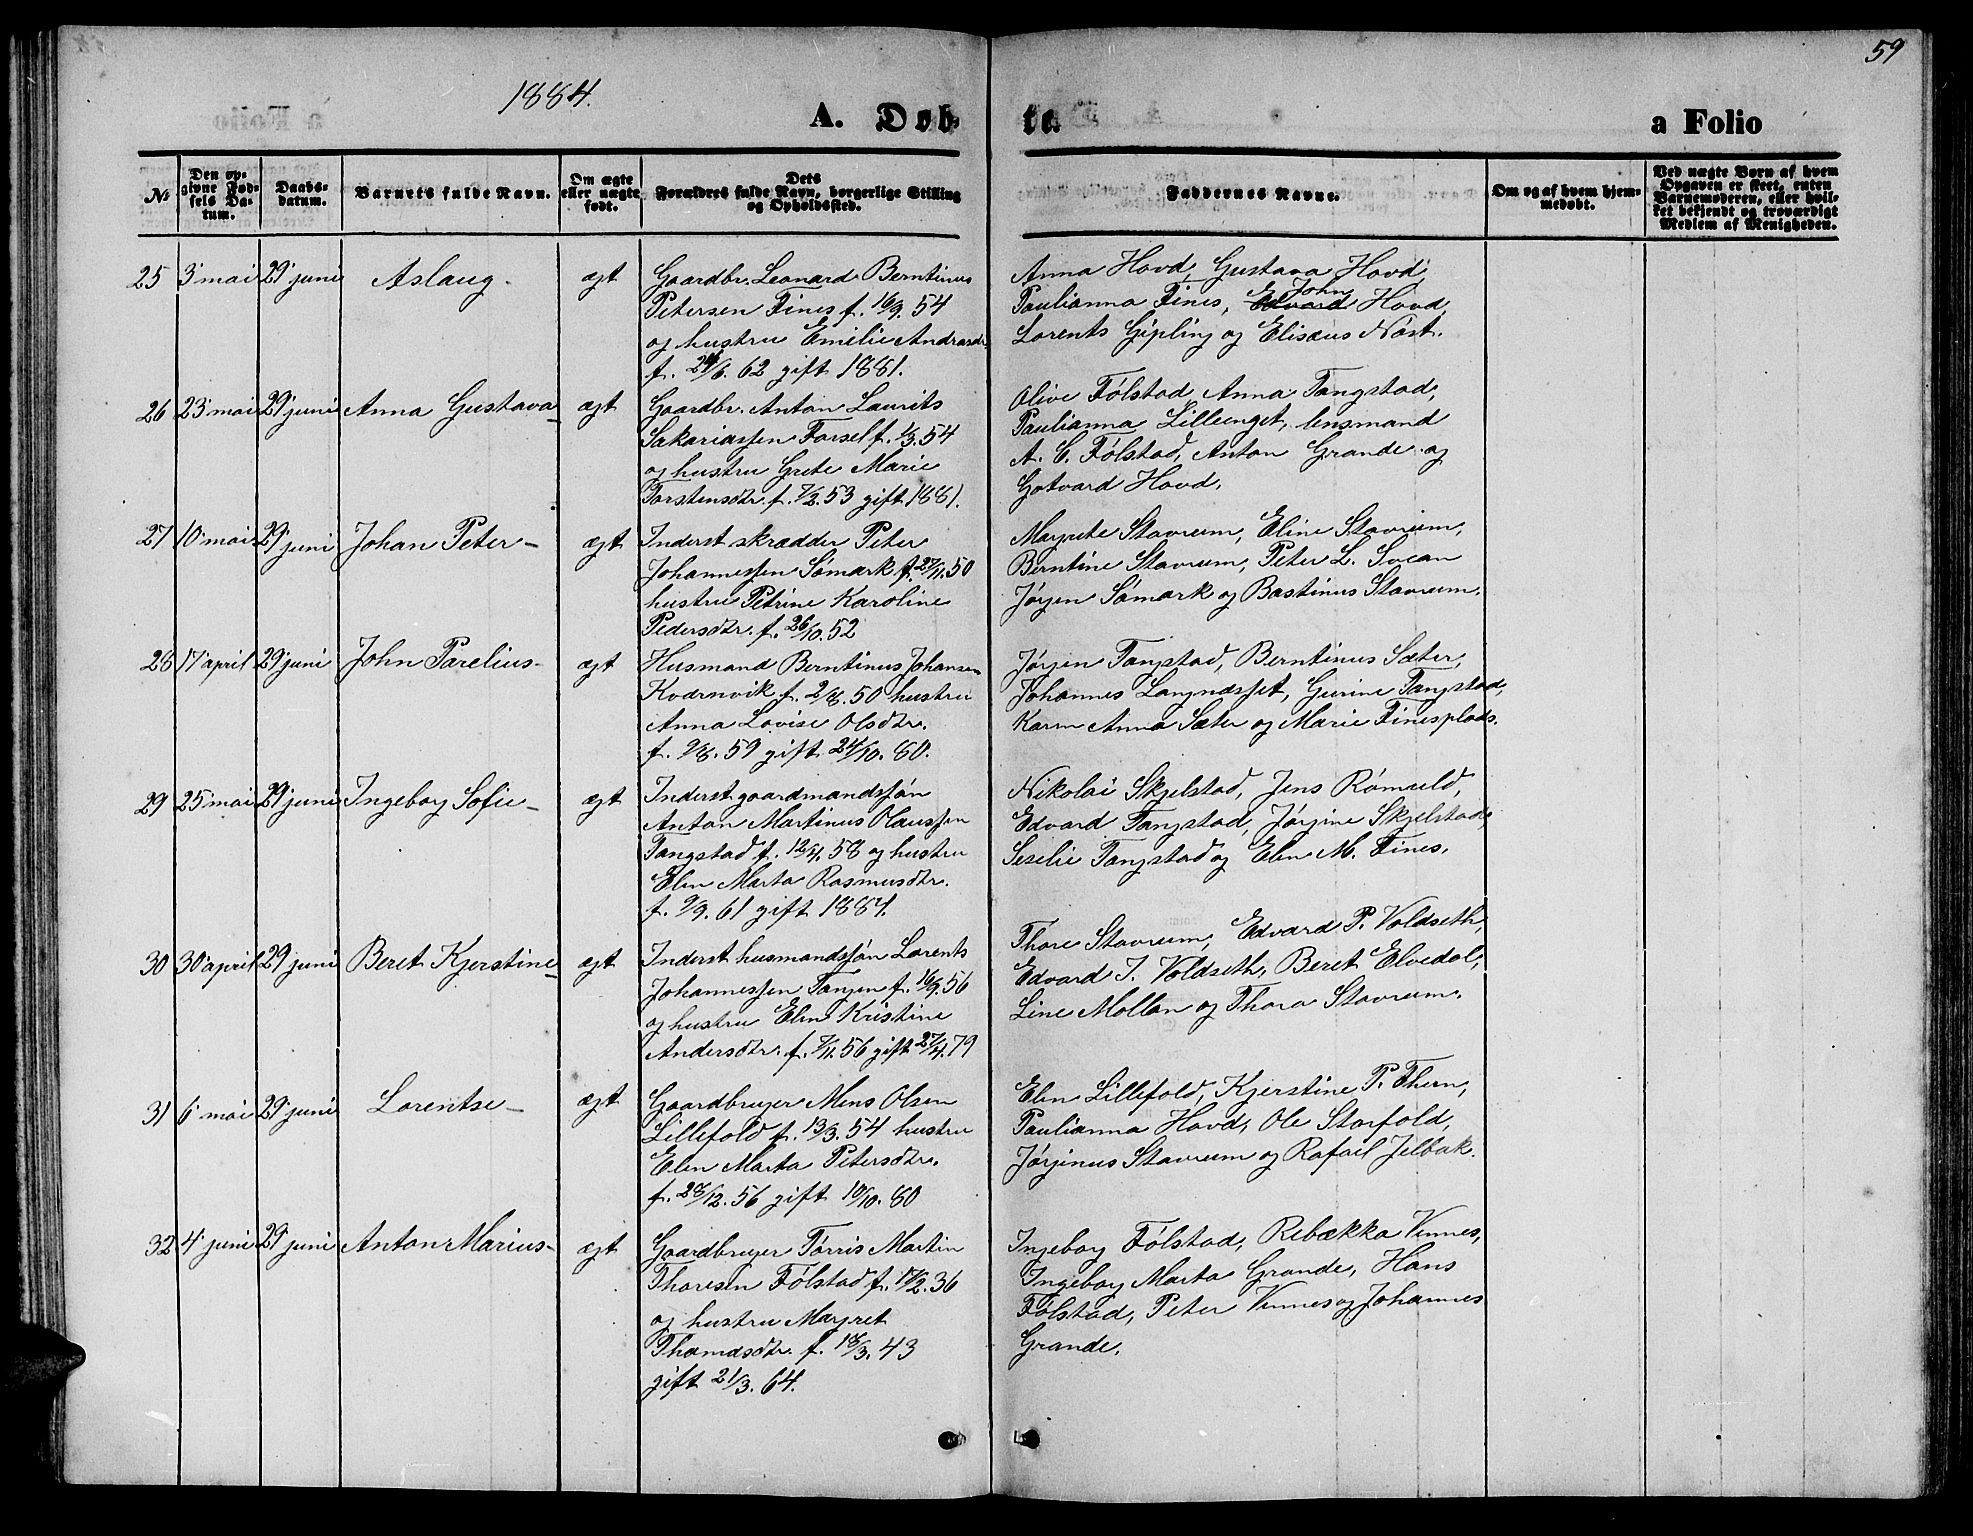 59
1884.
A. Døb-
te.
a Folio
№
Den op-
givne Fød-
sels Da-
tum.
Daabs-
datum.
Barnets fulde Navn.
Om ægte
eller uægte
født.
Dets
Forældres fulde Navn, borgerlige Stilling
og Opholdssted.
Faddernes Navne.
Om og af hvem hjem-
medøbt.
Ved uægte Børn af hvem
Opgaven er skeet, enten
Barnemoderen, eller hvil-
ket bekjendt og troværdigt
Medlem af Menigheden.
25 3 mai 29 juni Aslaug - ægt
Gaardbr. Leonard Berntinus
Petersen Fines f. 16/9. 54
og hustru Emilie Andrasdtr.
f. 24/6. 62 gift 1881.
Anna Hovd, Gustava Hovd
Paulianna Fines, E. John Hovd,
Lorents Gipling og Elisæus Nøst.
26 23 mai 29 juni Anna Gustava - ægt
Gaardbr. Anton Laurits
Sakariassen Forsel f. 1/3. 54
og hustru Grete Marie
Torstensdtr. f. 7/2. 53 gift 1881.
Olive Følstad, Anna Tangstad,
Paulianna Lilleenget, lensmand
A. C. Følstad, Anton Grande og
Gotvard Hovd.
27 10 mai 29 juni Johan Peter - ægt
Inderst skrædder Peter
Johannessen Sømark f. 27/11. 50
hustru Petrine Karoline
Pedersdtr. f. 26/10. 52
Margrete Stavrum, Eline Stavrum,
Berntine Stavrum, Peter L. Svean
Jørgen Sømark og Bastinus Stavrum.
28 17 april 29 juni John Parelius - ægt
Husmand Berntinus Johansen
Kværnvik f. 2/8. 50 hustru
Anna Lovise Olsdtr.
f. 9/8. 59 gift 24/10. 80.
Jørgen Tangstad, Berntinus Sæter,
Johannes Langnæsset, Gurine Tangstad,
Karen Anna Sæter og Marie Finesplads.
29 25 mai 29 juni Ingeborg Sofie - ægt
Inderst gaardmandssøn
Anton Martinus Olaussen
Tangstad f. 12/4. 58 og hustru
Elen Marta Rasmusdtr.
f. 9/9. 61 gift 1884.
Nikolai Skjelstad, Jens Rømuld,
Edvard Tangstad, Jørgine Skjelstad,
Sesilie Tangstad og Elen M. Fines.
30 30 april 29 juni Beret Kjerstine - ægt
Inderst husmandssøn Lorents
Johannessen Tangen f. 16/9. 56
og hustru Elen Kristine
Andersdtr. f. 7/11. 56 gift 27/4. 79
Thore Stavrum, Edvard P. Voldseth,
Edvard J. Voldseth, Beret Elvedal,
Line Mollan og Thora Stavrum.
31 6 mai 29 juni Lorentse - ægt
Gaardbruger Mens Olsen
Lillefold f. 13/3. 54 hustru
Elen Marta Petersdtr.
f. 28/12. 56 gift 10/10. 80
Elen Lillefold, Kjerstine P. Thun,
Paulianna Hovd, Ole Storfold,
Jørginus Stavrum og Rafail Jelbak.
32 4 juni 29 juni Anton Marius - ægt
Gaardbruger Tørris Martin
Thoresen Følstad f. 17/2. 36
og hustru Margret
Thomasdtr. f. 18/3. 43
gift 21/3. 64.
Ingeborg Følstad, Rebækka Vinnes,
Ingeborg Marta Grande, Hans
Følstad, Peter Vinnes og Johannes
Grande.